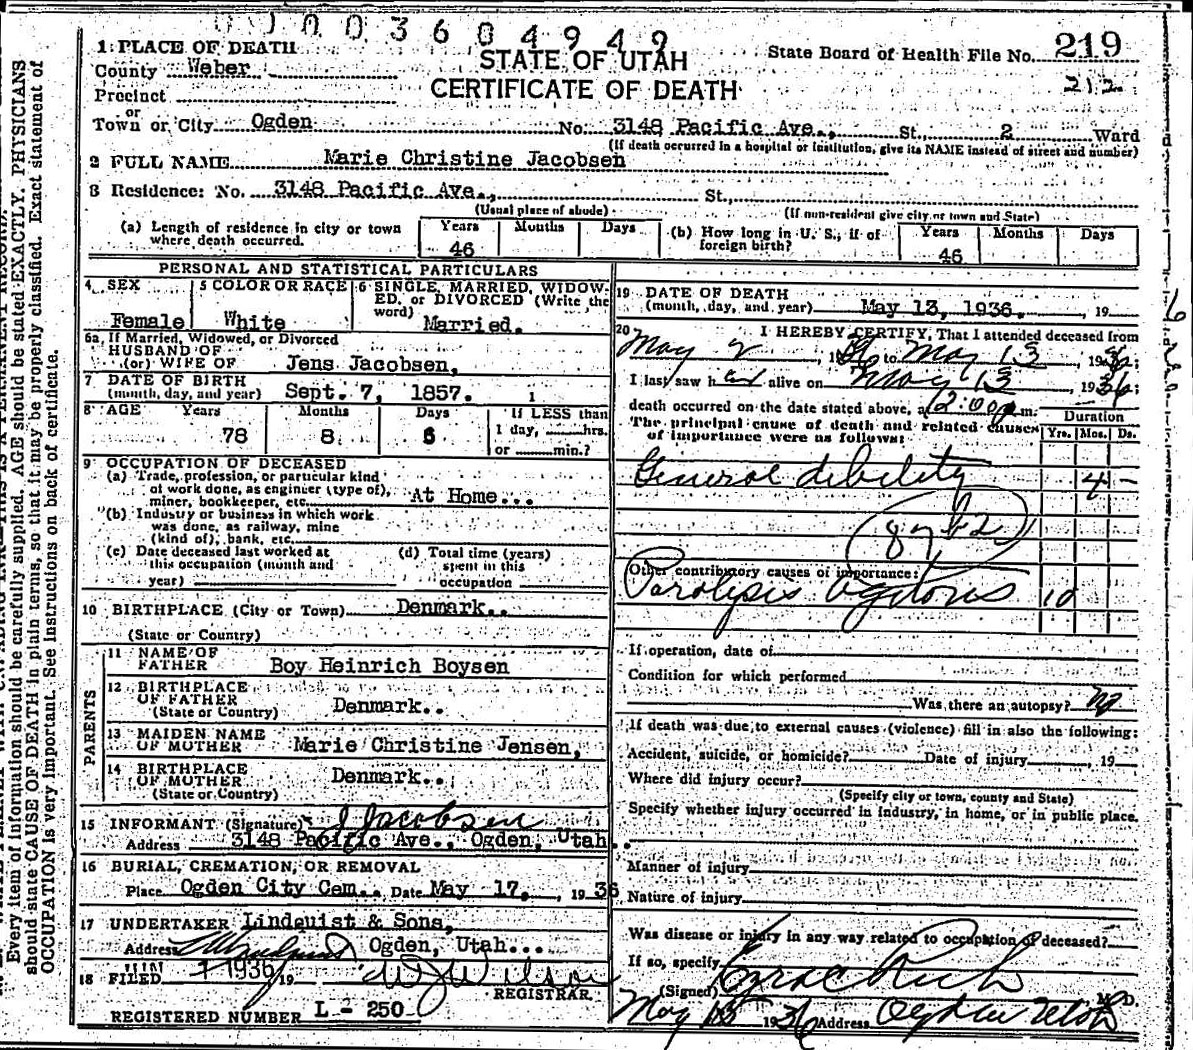 0 0 0 0 3 6 0 4 9 4 9
STATE OF UTAH
CERTIFICATE OF DEATH
State Board of Health File No. 219
212
1 PLACE OF DEATH
County Weber
Precinct
or
Town or City Ogden No. 3148 Pacific Ave., St., 2 Ward
(If death occurred in a hospital or institution, give its NAME instead of street and number)
2 FULL NAME Marie Christine Jacobsen
3 Residence: No. 3148 Pacific Ave., St.,
(Usual place of abode) (If non-resident give city or town and State)
(a) Length of residence in city or town where death occurred. Years 46 Months Days
(b) How long in U. S., if of foreign birth? Years 46 Months Days
PERSONAL AND STATISTICAL PARTICULARS
4 SEX Female
5 COLOR OR RACE White
6 SINGLE, MARRIED, WIDOWED, or DIVORCED (Write the word) Married.
6a If Married, Widowed, or Divorced
HUSBAND OF
(or) WIFE OF Jens Jacobsen,
7 DATE OF BIRTH
(month, day, and year) Sept. 7, 1857.
8 AGE Years 78 Months 8 Days 6
If LESS than
1 day, hrs.
or min.?
9 OCCUPATION OF DECEASED
(a) Trade, profession, or particular kind
of work done, as engineer (type of),
miner, bookkeeper, etc. At Home...
(b) Industry or business in which work
was done, as railway, mine
(kind of), bank, etc.
(c) Date deceased last worked at
this occupation (month and
year)
(d) Total time (years)
spent in this
occupation
10 BIRTHPLACE (City or Town) Denmark..
(State or Country)
PARENTS
11 NAME OF
FATHER Boy Heinrich Boysen
12 BIRTHPLACE
OF FATHER
(State or Country) Denmark..
13 MAIDEN NAME
OF MOTHER Marie Christine Jensen,
14 BIRTHPLACE
OF MOTHER
(State or Country) Denmark..
15 INFORMANT (Signature) J Jacobsen
Address 3148 Pacific Ave., Ogden, Utah..
16 BURIAL, CREMATION, OR REMOVAL
Place Ogden City Cem.. Date May 17, 1936
17 UNDERTAKER Lindquist & Sons,
Address Ogden, Utah...
18 FILED 1936 19 W J Wilson
REGISTRAR
REGISTERED NUMBER L - 250
19 DATE OF DEATH
(month, day, and year) May 13, 1936. , 19
20 I HEREBY CERTIFY, That I attended deceased from
May 2, 1936 to May 13 1936;
I last saw her alive on May 13 1936;
death occurred on the date stated above, at 12:00 p.m.
The principal cause of death and related causes
of importance were as follows:
Duration
Yrs. Mos. Ds.
General debility 4 -
87b2
Other contributory causes of importance:
Paralysis Agitans 10
If operation, date of
Condition for which performed
Was there an autopsy? no
If death was due to external causes (violence) fill in also the following:
Accident, suicide, or homicide? Date of injury , 19
Where did injury occur?
(Specify city or town, county and State)
Specify whether injury occurred in industry, in home, or in public place.
Manner of injury
Nature of injury
Was disease or injury in any way related to occupation of deceased?
If so, specify
(Signed) Ezra C Rich M. D.
May 15 1936 Address Ogden Utah
Every item of information should be carefully supplied. AGE should be stated EXACTLY. PHYSICIANS
should state CAUSE OF DEATH in plain terms, so that it may be properly classified. Exact statement of
OCCUPATION is very important. See instructions on back of certificate.